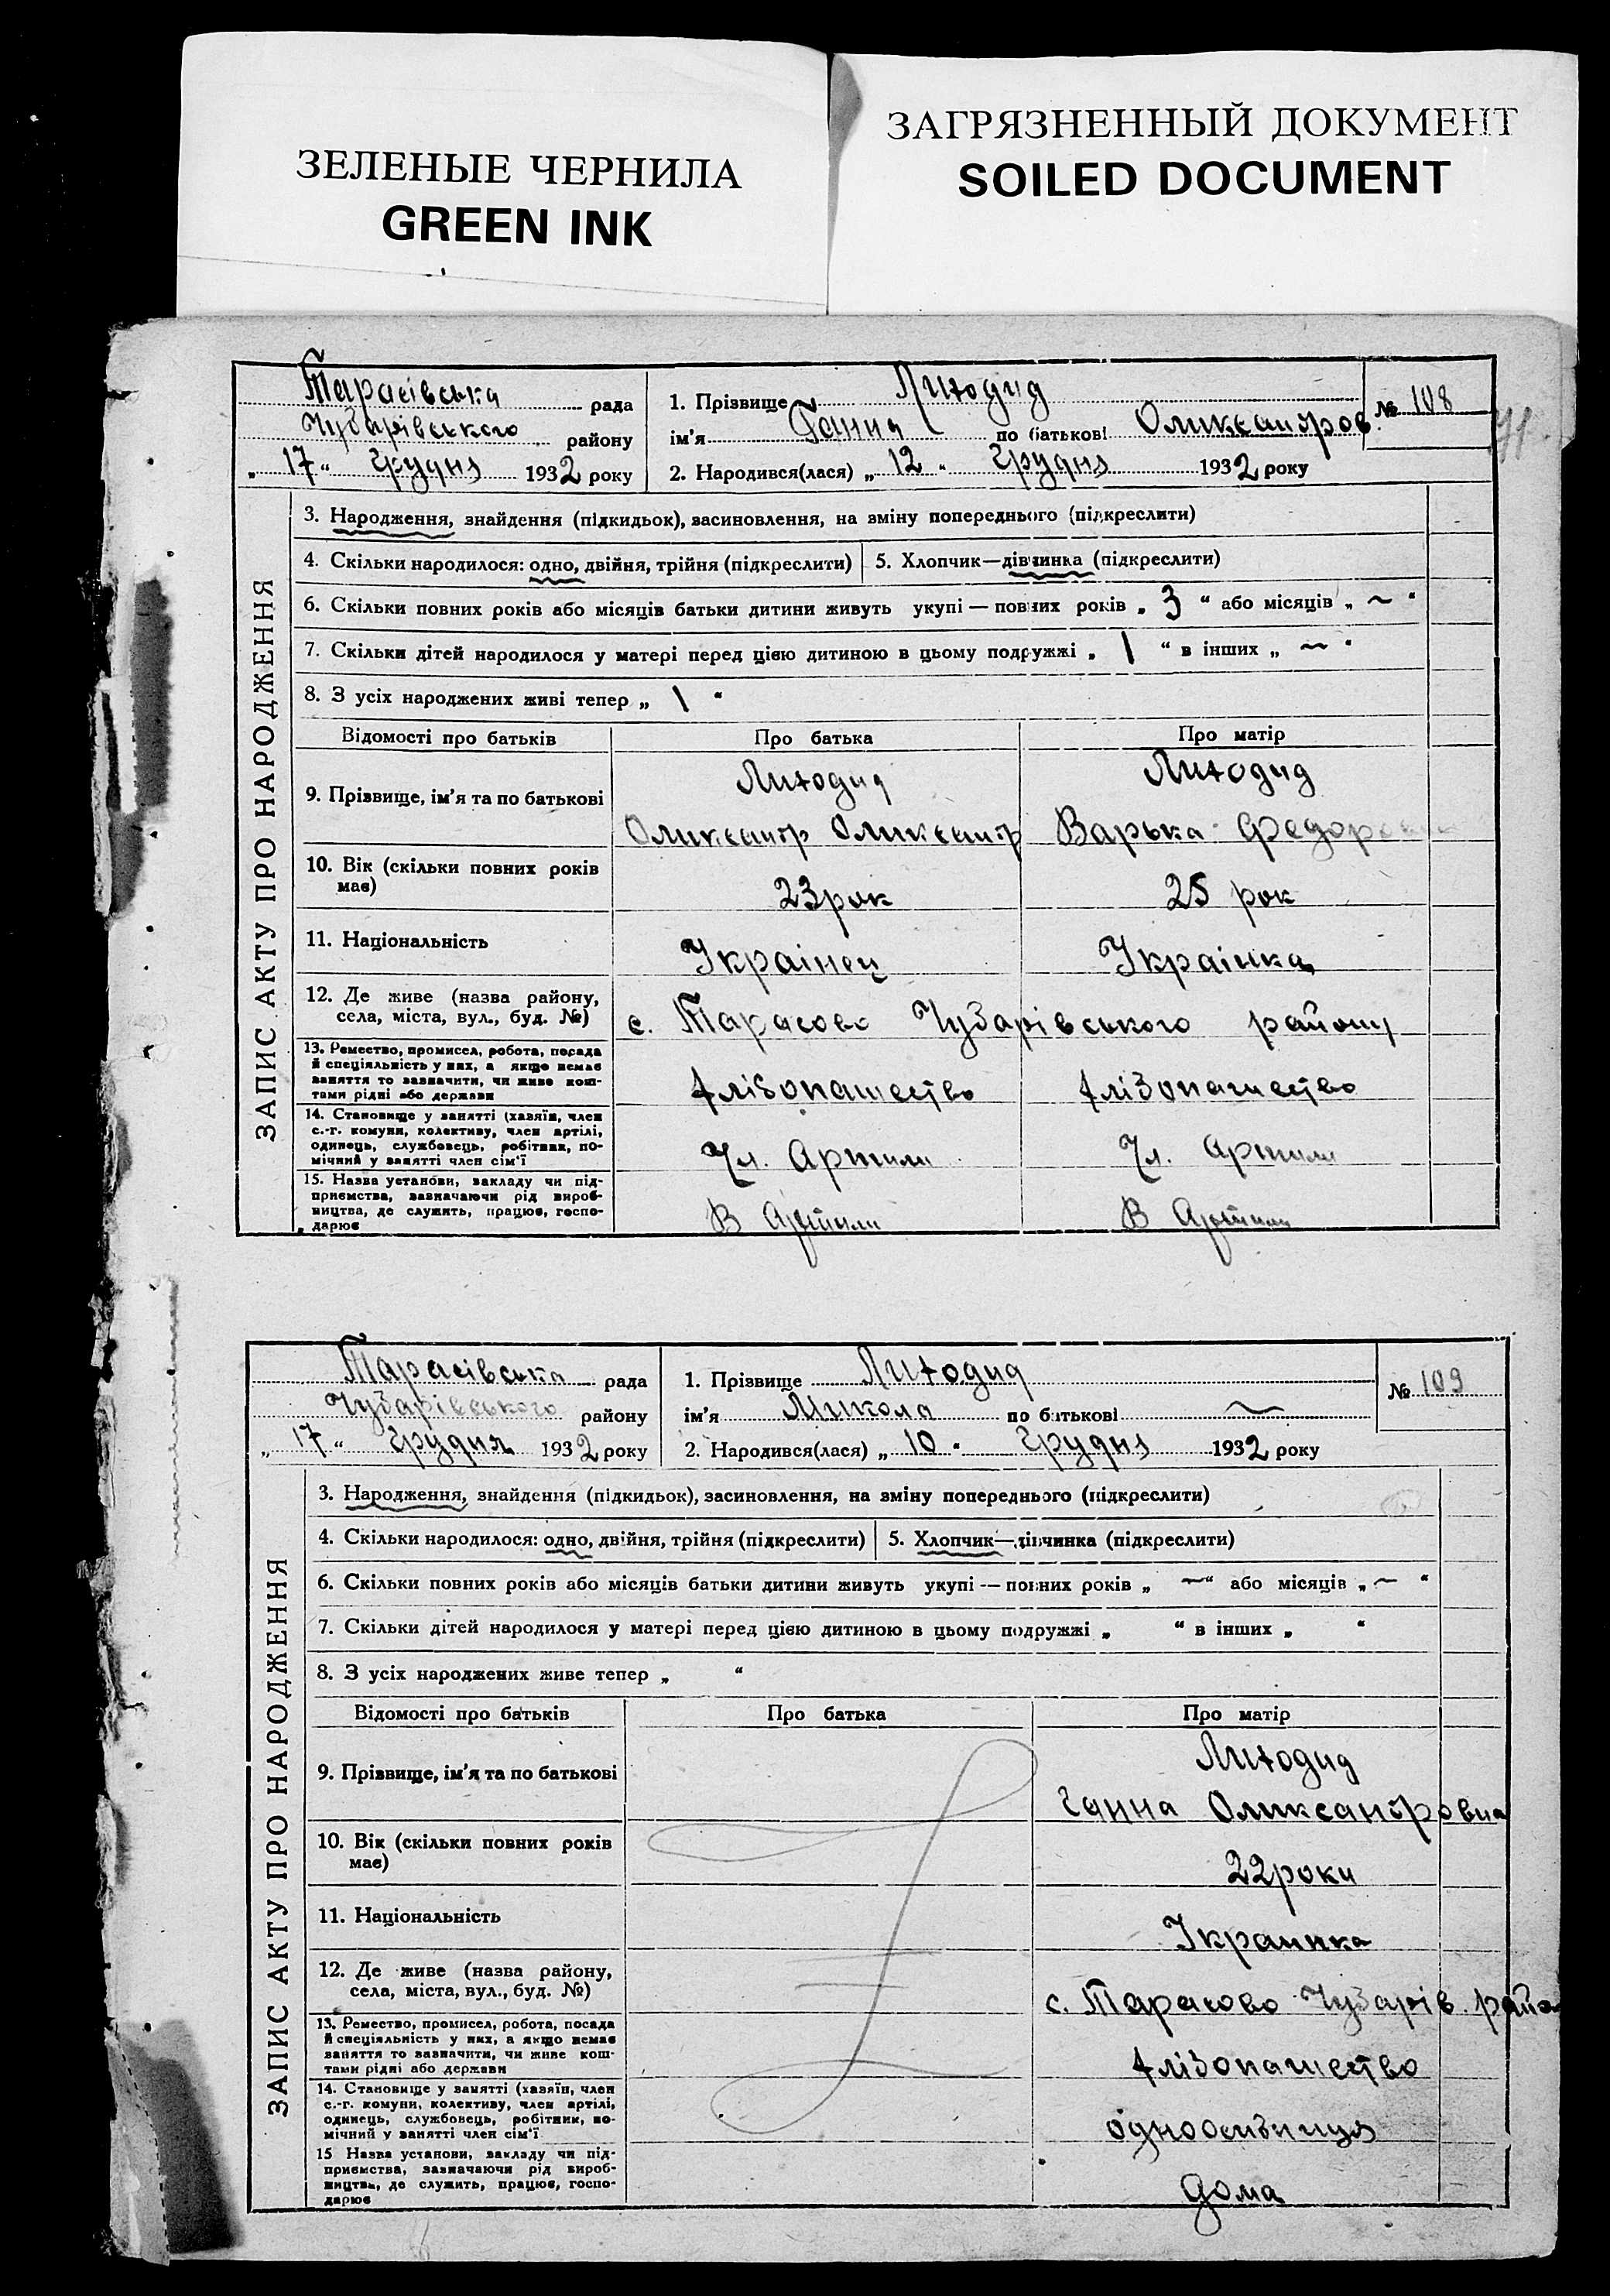 ЗЕЛЕНЫЕ ЧЕРНИЛА
GREEN INK
ЗАГРЯЗНЕННЫЙ ДОКУМЕНТ
SOILED DOCUMENT
ЗАПИС АКТУ ПРО НАРОДЖЕННЯ
Тарасівська рада
Чубарівського району
„ 17 “ Грудня 1932 року
1. Прізвище Лиходид
№ 108
ім'я Ганна по батькові Оликсандров.
2. Народився(лася) „ 12 “ Грудня 1932 року
3. Народження, знайдення (підкидьок), васиновлення, на зміну попереднього (підкреслити)
4. Скільки народилося: одно, двійня, трійня (підкреслити) 5. Хлопчик—дівчинка (підкреслити)
6. Скільки повних років або місяців батьки дитини живуть укупі — повних років „ 3 “ або місяців „ ~ “
7. Скільки дітей народилося у матері перед цією дитиною в цьому подружжі „ 1 “ в інших „ ~ “
8. З усіх народжених живі тепер „ 1 “
Відомості про батьків Про батька Про матір
9. Прізвище, ім'я та по батькові
Лиходид Лиходид
Оликсандр Оликсандр Варька Федоровна
10. Вік (скільки повних років має)
23 рок 25 рок
11. Національність
Украінец Украінка
12. Де живе (назва району, села, міста, вул., буд. №)
с. Тарасово Чубарівського району
13. Ремество, промисел, робота, посада
й спеціяльність у них, а якщо немає
заняття то зазначити, чи живе кош-
тами рідні або держави
Хлізопашество Хлізопашество
14. Становище у занятті (хазяїн, член
с.-г. комуни, колективу, член артілі,
одинець, службовець, робітник, по-
мічний у занятті член сім'ї
Чл. Артили Чл. Артили
15. Назва установи, закладу чи під-
приємства, зазначаючи рід вироб-
ництва, де служить, працює, госпо-
дарює
В Артили В Артили
ЗАПИС АКТУ ПРО НАРОДЖЕННЯ
Тарасівська рада
Чубарівського району
„ 17 “ Грудня 1932 року
1. Прізвище Лиходид
№ 109
ім'я Микола по батькові ~
2. Народився(лася) „ 10 “ Грудня 1932 року
3. Народження, знайдення (підкидьок), засиновлення, на зміну попереднього (підкреслити)
4. Скільки народилося: одно, двійня, трійня (підкреслити) 5. Хлопчик—дівчинка (підкреслити)
6. Скільки повних років або місяців батьки дитини живуть укупі — повних років „ ~ “ або місяців „ ~ “
7. Скільки дітей народилося у матері перед цією дитиною в цьому подружжі „ “ в інших „ “
8. З усіх народжених живе тепер „ “
Відомості про батьків Про батька Про матір
9. Прізвище, ім'я та по батькові
Лиходид
Ганна Оликсандровна
10. Вік (скільки повних років має)
22 роки
11. Національність
Украинка
12. Де живе (назва району, села, міста, вул., буд. №)
с. Тарасово Чубарів. райо
13. Ремество, промисел, робота, посада
й спеціяльність у них, а якщо немає
заняття то зазначити, чи живе кош-
тами рідні або держави
Хлізопашество
14. Становище у занятті (хазяїн, член
с.-г. комуни, колективу, член артілі,
одинець, службовець, робітник, по-
мічний у занятті член сім'ї
одноосибница
15 Назва установи, закладу чи під-
приємства, зазначаючи рід вироб-
ництва, де служить, працює, госпо-
дарює
дома